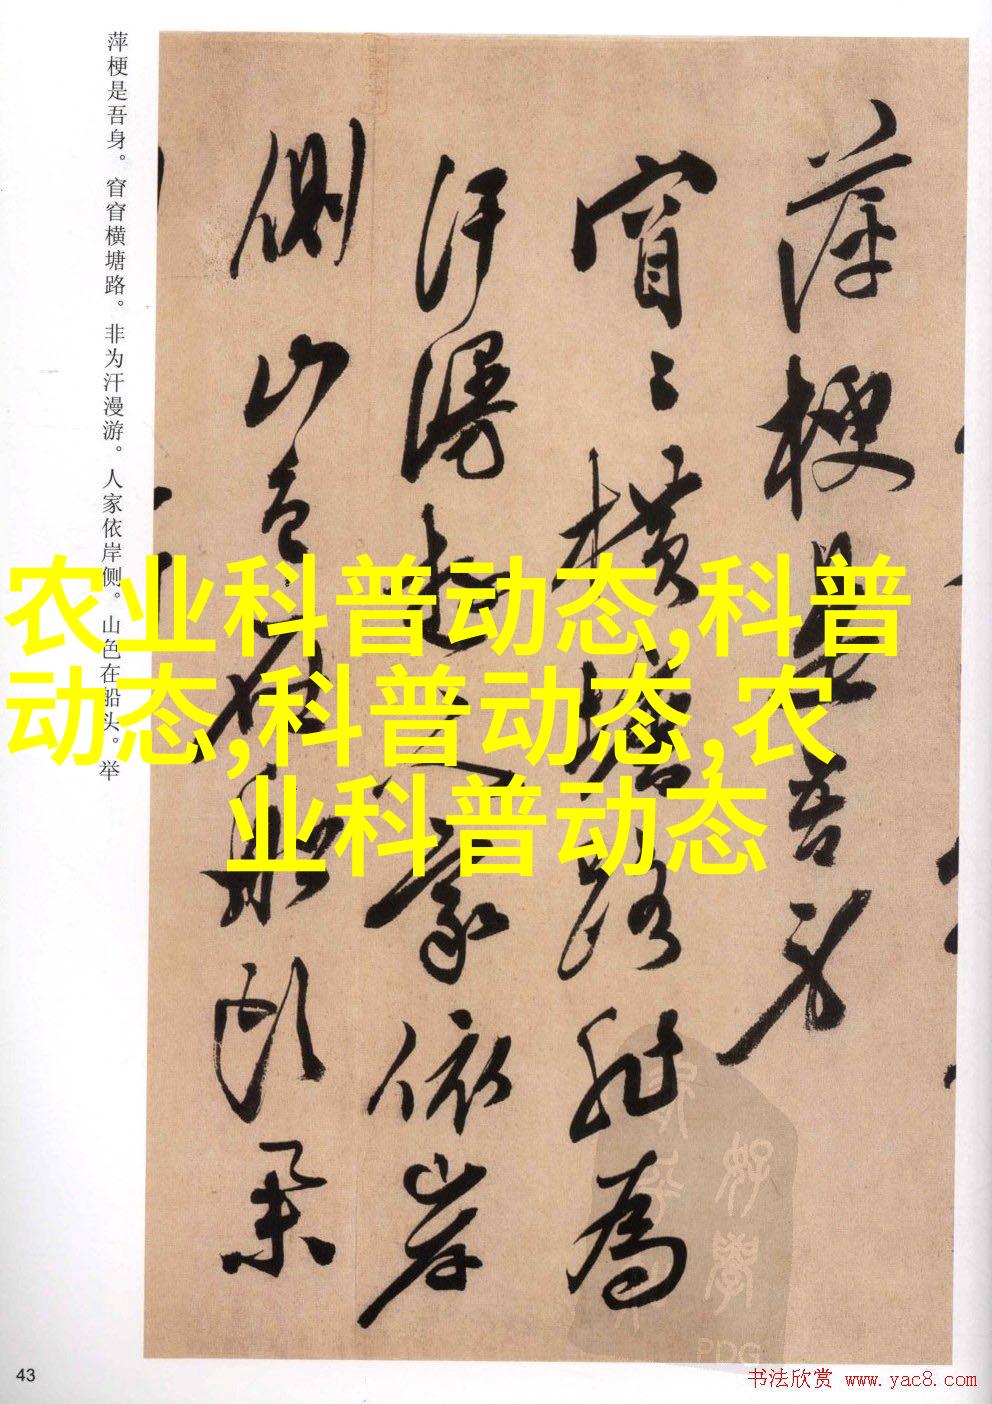 萍梗是吾身。窅窅横塘路。非为汗漫游。人家依岸侧。山色在船头。举
萍梗是吾身
窅〻横塘路非为
汗漫游人家依岸
侧山色在船头举
农业科普动态,科普
动态,科普动态,农
业科普动态
好学
PDG
43
书法欣赏 www.yac8.com